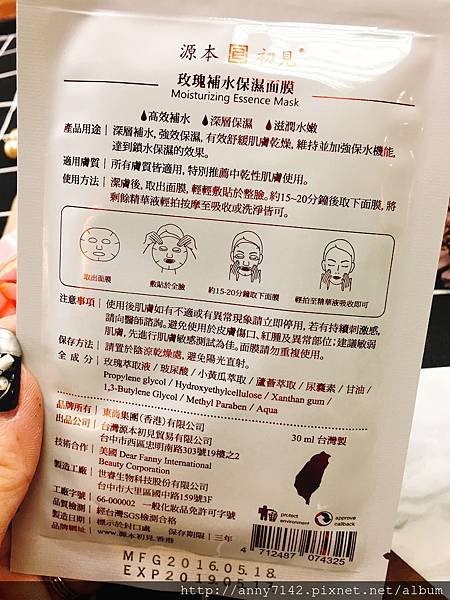 源本 初見®
玫瑰補水保濕面膜
Moisturizing Essence Mask
高效補水 深層保濕 滋潤水嫩
產品用途 深層補水,強效保濕,有效舒緩肌膚乾燥,維持並加強保水機能,
達到鎖水保濕的效果。
適用膚質 所有膚質皆適用,特別推薦中乾性肌膚使用。
使用方法 潔膚後,取出面膜,輕輕敷貼於整臉。約15~20分鐘後取下面膜,將
剩餘精華液輕拍按摩至吸收或洗淨皆可。
取出面膜 敷貼於全臉 約15-20分鐘取下面膜 輕拍至精華液吸收即可
注意事項 使用後肌膚如有不適或有異常現象請立即停用,若有持續刺激感,
請向醫師諮詢。避免使用於皮膚傷口、紅腫及異常部位;建議敏弱
肌膚,先進行肌膚敏感測試為佳。面膜請勿重複使用。
保存方法 請置於陰涼乾燥處,避免陽光直射。
全成分 玫瑰萃取液 / 玻尿酸 / 小黃瓜萃取 / 蘆薈萃取 / 尿囊素 / 甘油 /
Propylene glycol / Hydroxyethylcellulose / Xanthan gum /
1,3-Butylene Glycol / Methyl Paraben / Aqua
品牌所有 東尚集團(香港)有限公司
出品公司 台灣源本初見貿易有限公司 30 ml 台灣製
台中市西區忠明南路303號19樓之2
技術合作 美國 Dear Fanny International
Beauty Corporation
製造工廠 世睿生物科技股份有限公司
台中市大里區國中路159號3F
工廠字號 66-000002 一般化妝品免許可字號
品質檢測 經台灣SGS檢測合格
製造日期 標示於封口處 保存期限 三年
品牌網址 www.源本初見.香港
protect environment
approve callback
4 712487 074325
MFG2016.05.18
EXP2019.05.17
http://anny7142.pixnet.net/album